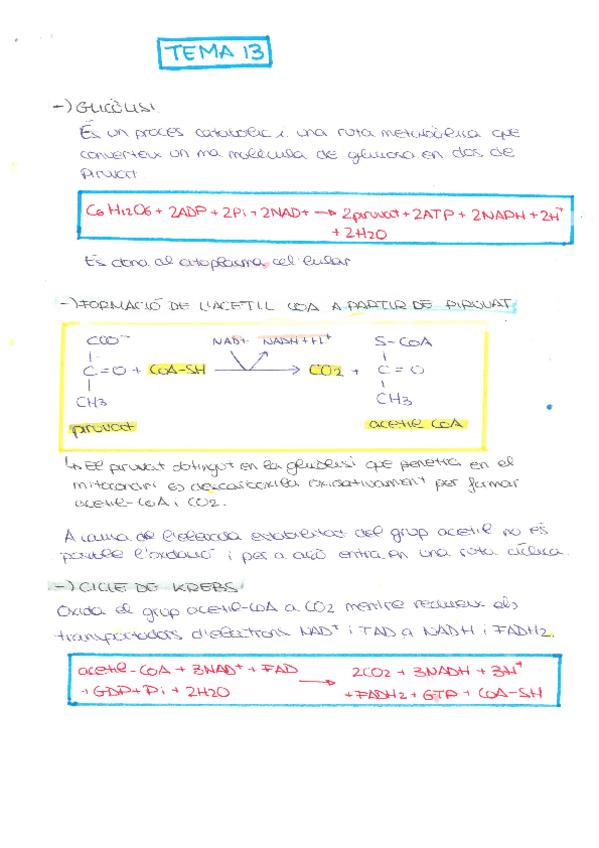 TEMA 13
-) GLICÒLISI
És un procés catabòlic i una ruta metabòlica que
converteix un ma molècula de glucosa en dos de
piruvat
C6H12O6 + 2ADP + 2Pi + 2NAD+ → 2piruvat + 2ATP + 2NADH + 2H+
+ 2H2O
Es dona al citoplasma cel·lular
-) FORMACIÓ DE L'ACETIL COA A PARTIR DE PIRUVAT
COO- NAD+ NADH+H+ S-COA
C=O + COA-SH → CO2 + C=O
CH3 CH3
piruvat acetil COA
↳ El piruvat obtingut en la glucòlisi que penetra en el
mitocondri es descarboxila oxidativament per formar
acetil-COA i CO2.
A causa de l'elevada estabilitat del grup acetil no és
possible l'oxidació i per a açò entra en una ruta cíclica.
-) CICLE DE KREBS
Oxida el grup acetil-COA a CO2 mentre redueix els
transportadors d'electrons NAD+ i FAD a NADH i FADH2.
acetil-COA + 3NAD+ + FAD → 2CO2 + 3NADH + 3H+
+GDP+Pi + 2H2O +FADH2 + GTP + COA-SH